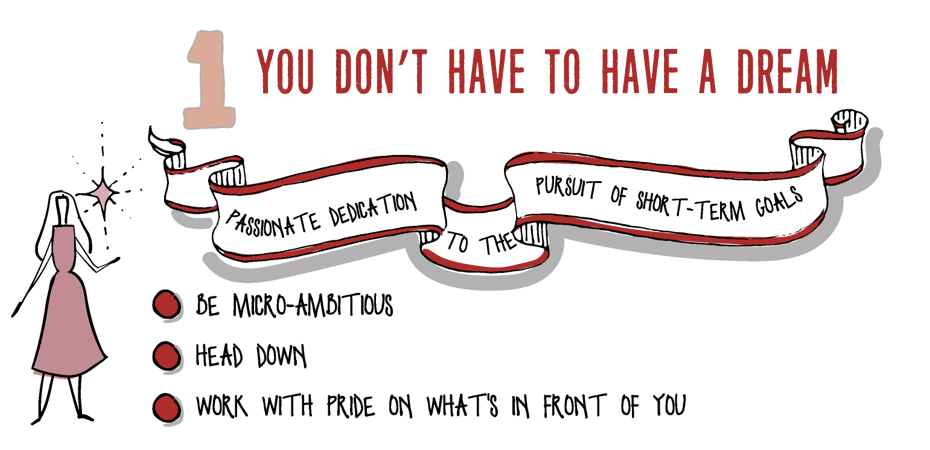 1 YOU DON'T HAVE TO HAVE A DREAM
PASSIONATE DEDICATION TO THE PURSUIT OF SHORT-TERM GOALS
BE MICRO-AMBITIOUS
HEAD DOWN
WORK WITH PRIDE ON WHAT'S IN FRONT OF YOU